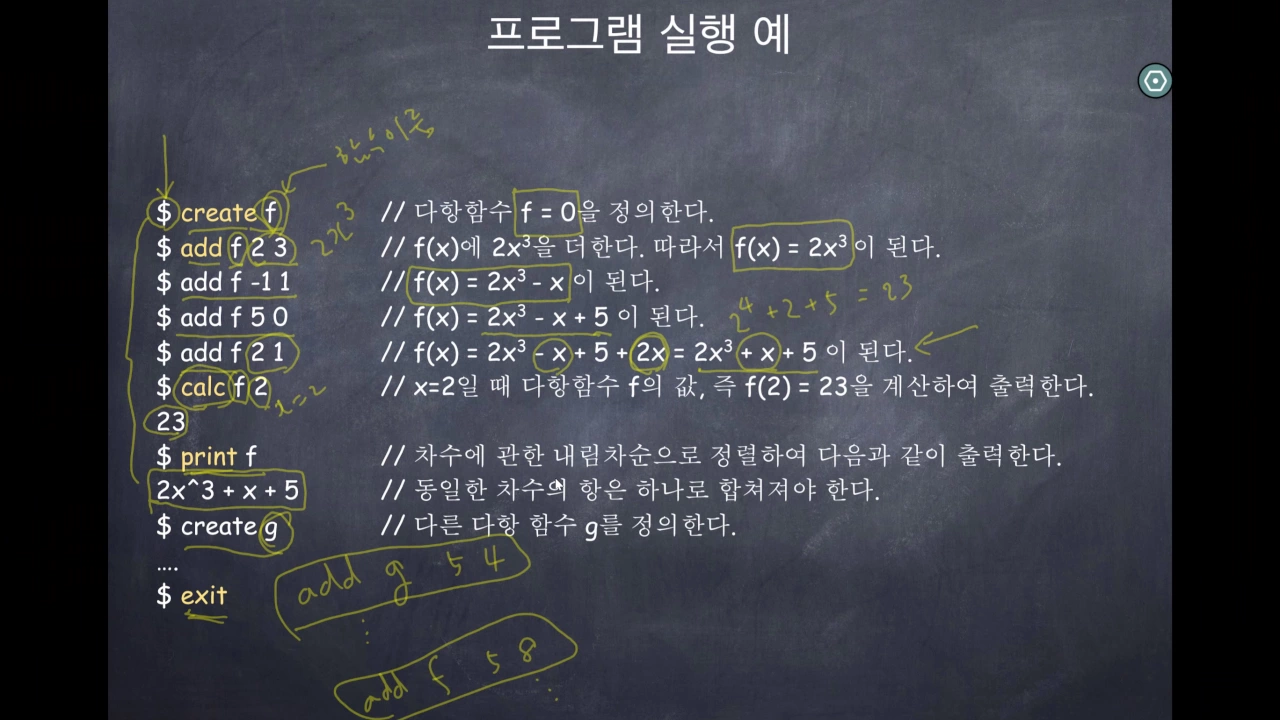 프로그램 실행 예
함수이름
$ create f // 다항함수 f = 0을 정의한다.
2x³
$ add f 2 3 // f(x)에 2x³을 더한다. 따라서 f(x) = 2x³ 이 된다.
$ add f -1 1 // f(x) = 2x³ - x 이 된다.
2⁴ + 2 + 5 = 23
$ add f 5 0 // f(x) = 2x³ - x + 5 이 된다.
$ add f 2 1 // f(x) = 2x³ - x + 5 + 2x = 2x³ + x + 5 이 된다.
$ calc f 2 // x=2일 때 다항함수 f의 값, 즉 f(2) = 23을 계산하여 출력한다.
x=2
23
$ print f // 차수에 관한 내림차순으로 정렬하여 다음과 같이 출력한다.
2x^3 + x + 5 // 동일한 차수의 항은 하나로 합쳐져야 한다.
$ create g // 다른 다항 함수 g를 정의한다.
....
add g 5 4
$ exit
⋮
add f 5 8
⋮